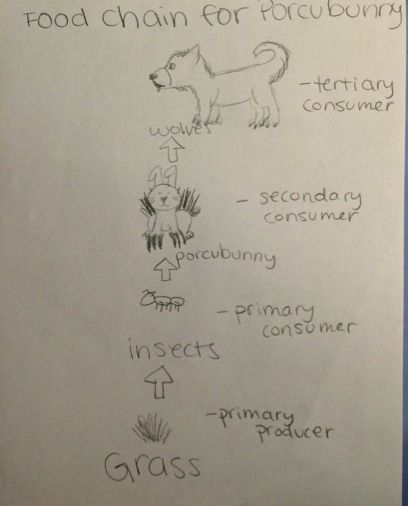 Food chain for Porcubunny
-tertiary
consumer
wolves
- secondary
consumer
porcubunny
-primary
consumer
insects
-primary
producer
Grass